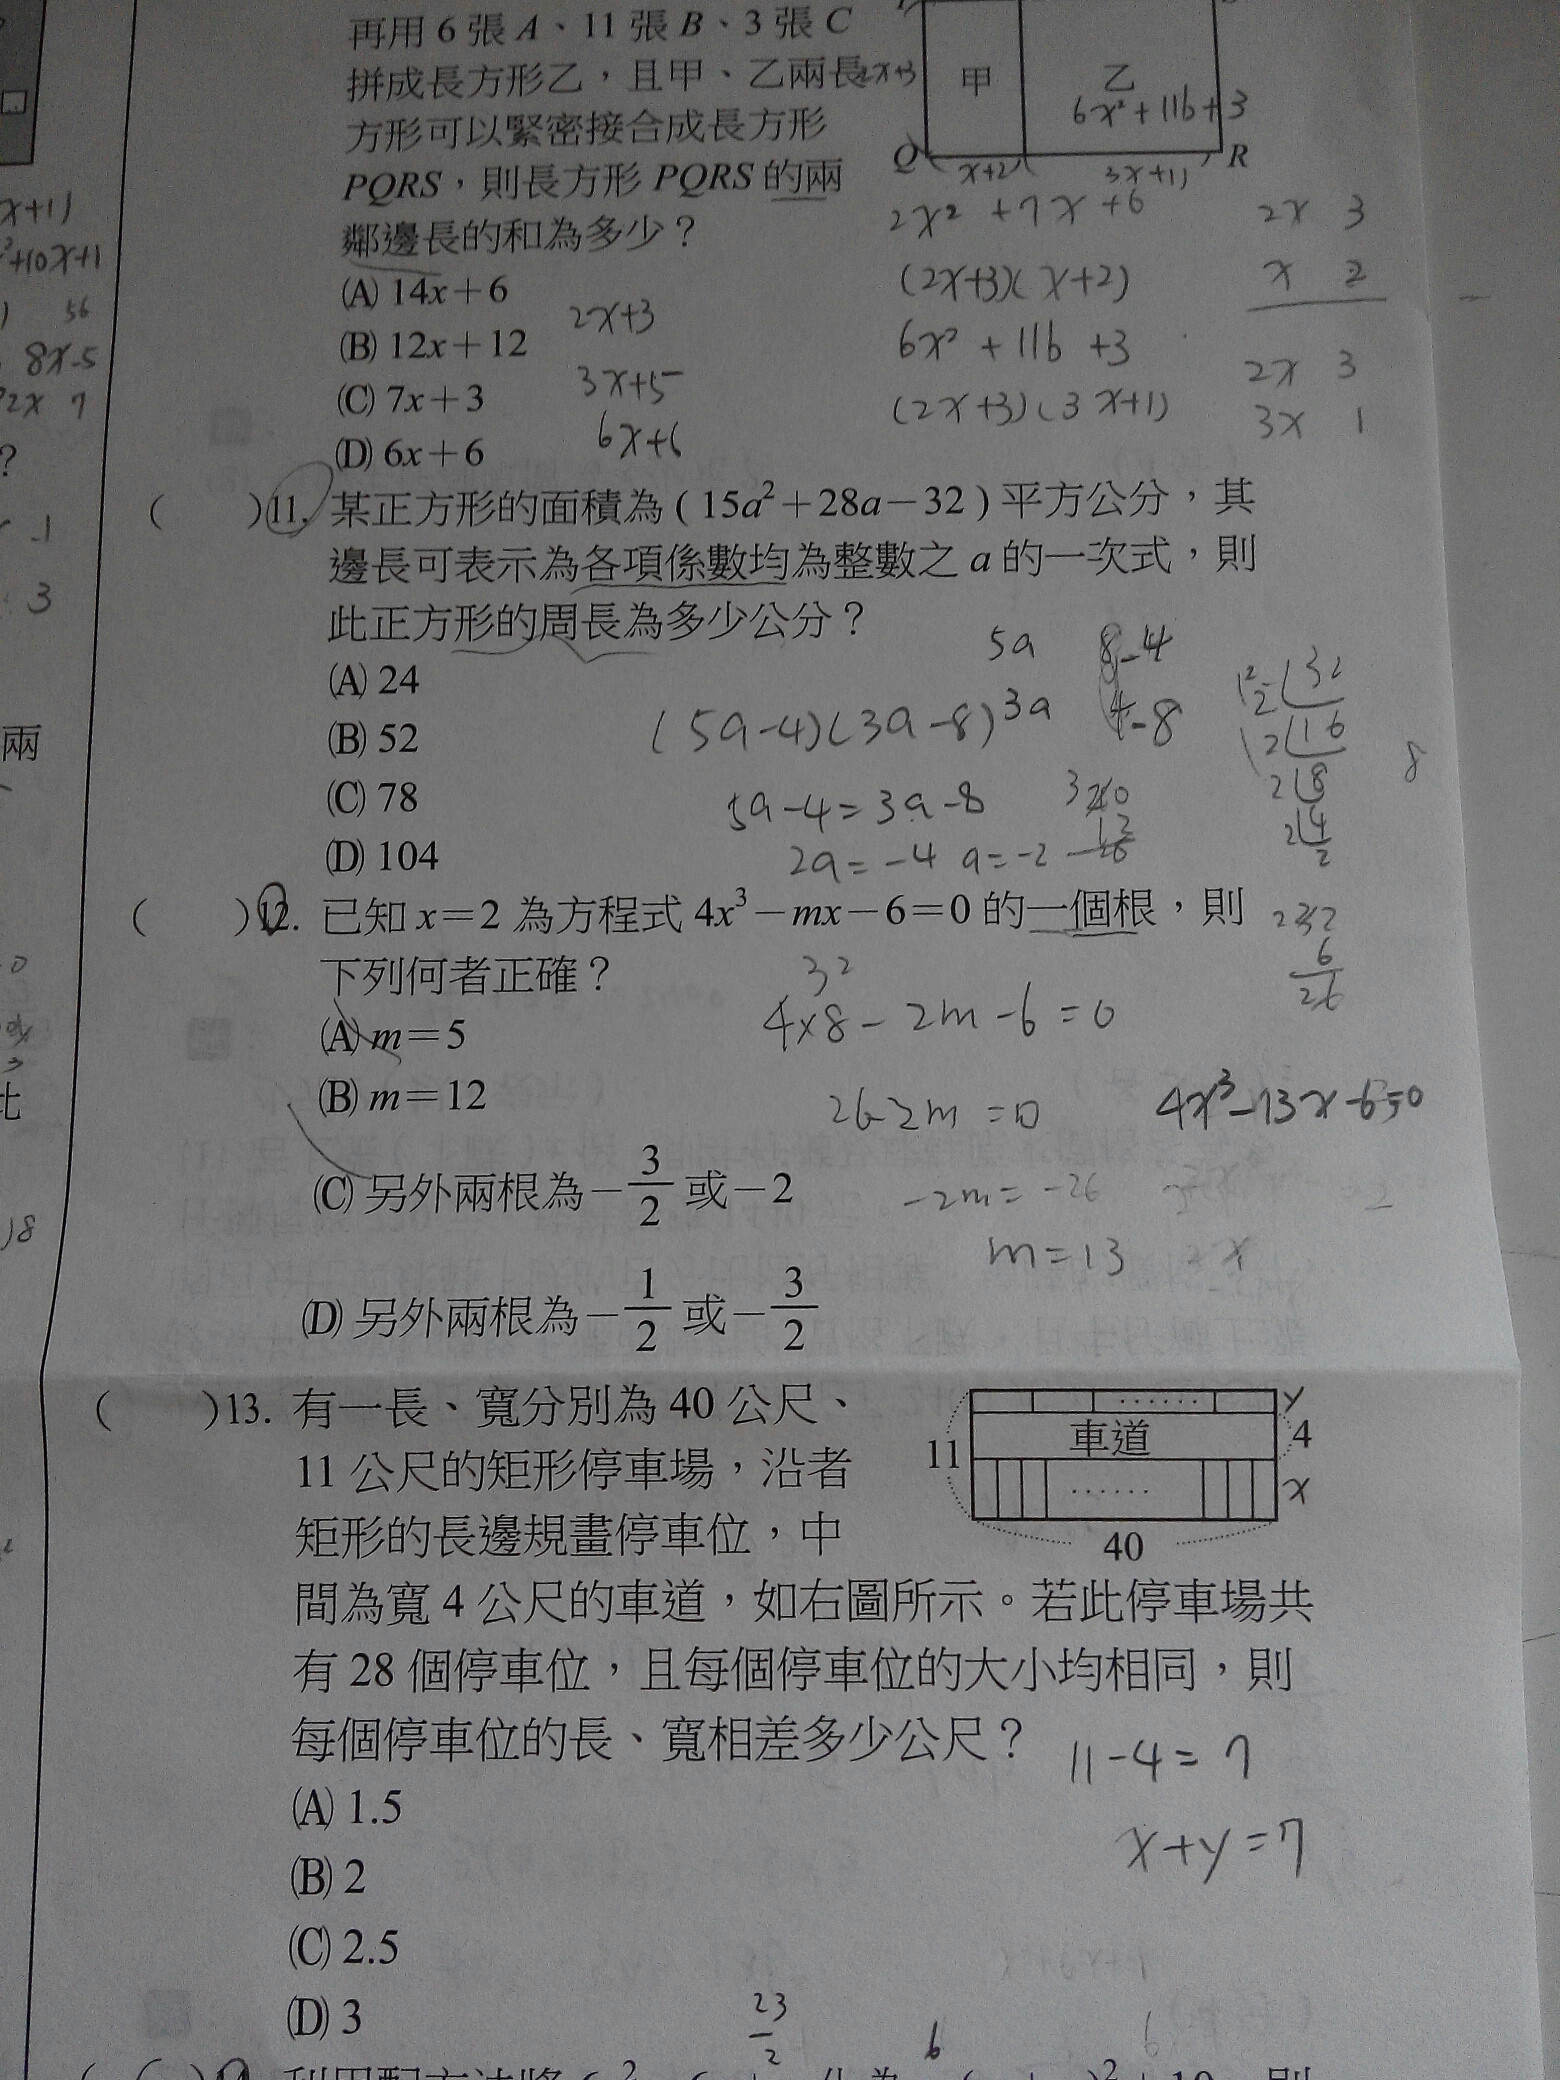 再用 6 張 A、11 張 B、3 張 C
拼成長方形乙，且甲、乙兩長
方形可以緊密接合成長方形
PQRS，則長方形 PQRS 的兩
鄰邊長的和為多少？
(A) 14x+6
(B) 12x+12
(C) 7x+3
(D) 6x+6
2x+3
甲
乙
6x²+11b+3
Q
R
x+2
3x+1
2x²+7x+6
(2x+3)(x+2)
6x²+11b+3
(2x+3)(3x+1)
2x 3
x 2
2x 3
3x 1
2x+3
3x+5
6x+6
x+1)
²+10x+1
56
8x-5
2x 7
?
-1
3
兩
( )11. 某正方形的面積為 ( 15a²+28a-32 ) 平方公分，其
邊長可表示為各項係數均為整數之 a 的一次式，則
此正方形的周長為多少公分？
(A) 24
(B) 52
(C) 78
(D) 104
5a 8-4
3a 4-8
(5a-4)(3a-8)
5a-4=3a-8
2a=-4 a=-2
2 32
2 16
2 8
2 4
2
8
( )12. 已知 x=2 為方程式 4x³-mx-6=0 的一個根，則
下列何者正確？
(A) m=5
(B) m=12
(C) 另外兩根為 -3/2 或 -2
(D) 另外兩根為 -1/2 或 -3/2
32
4×8-2m-6=0
26-2m=0
-2m=-26
m=13
6
26
4x³-13x-6=0
18
( )13. 有一長、寬分別為 40 公尺、
11 公尺的矩形停車場，沿者
矩形的長邊規畫停車位，中
間為寬 4 公尺的車道，如右圖所示。若此停車場共
有 28 個停車位，且每個停車位的大小均相同，則
每個停車位的長、寬相差多少公尺？
(A) 1.5
(B) 2
(C) 2.5
(D) 3
11
……
車道
……
y
4
x
40
11-4=7
x+y=7
23/2
6